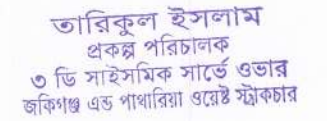 তারিকুল ইসলাম
প্রকল্প পরিচালক
৩ ডি সাইসমিক সার্ভে ওভার
জকিগঞ্জ এন্ড পাথারিয়া ওয়েষ্ট স্ট্রাকচার